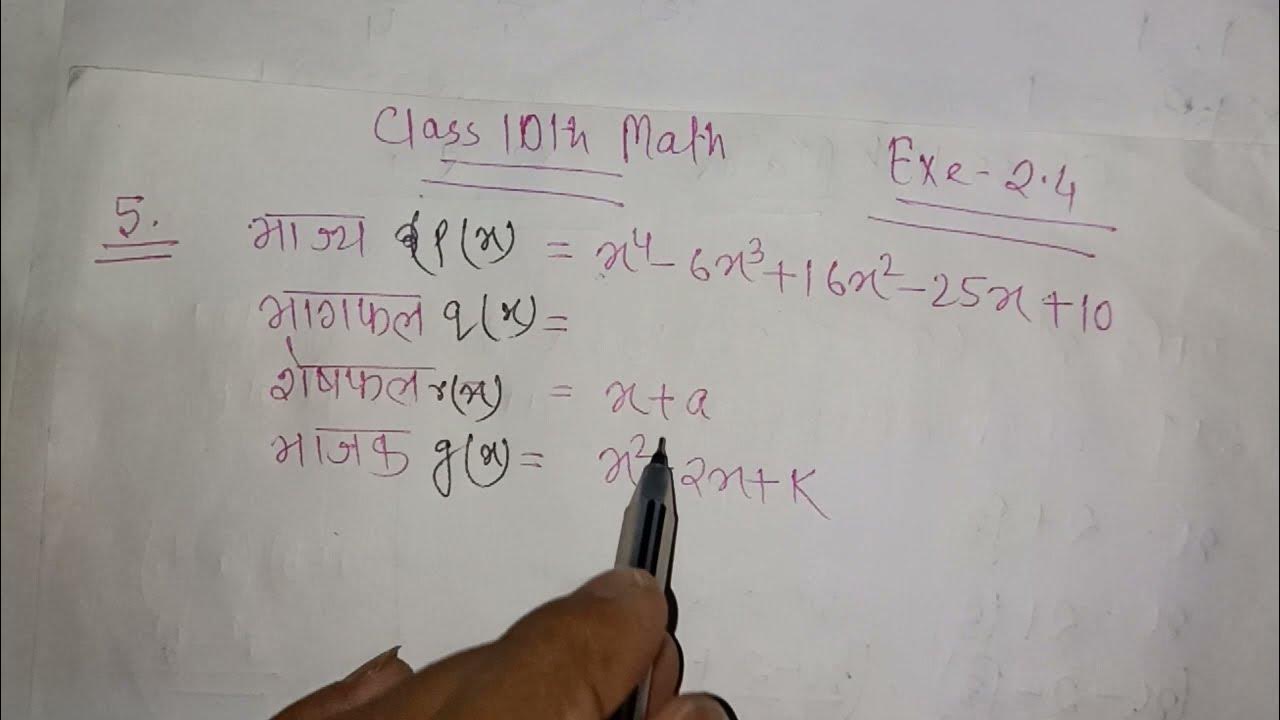 Class 10th Math
Exe-2.4
5. भाज्य p(x) = x⁴-6x³+16x²-25x+10
भागफल q(x)=
शेषफल r(x) = x+a
भाजक g(x)= x²-2x+K